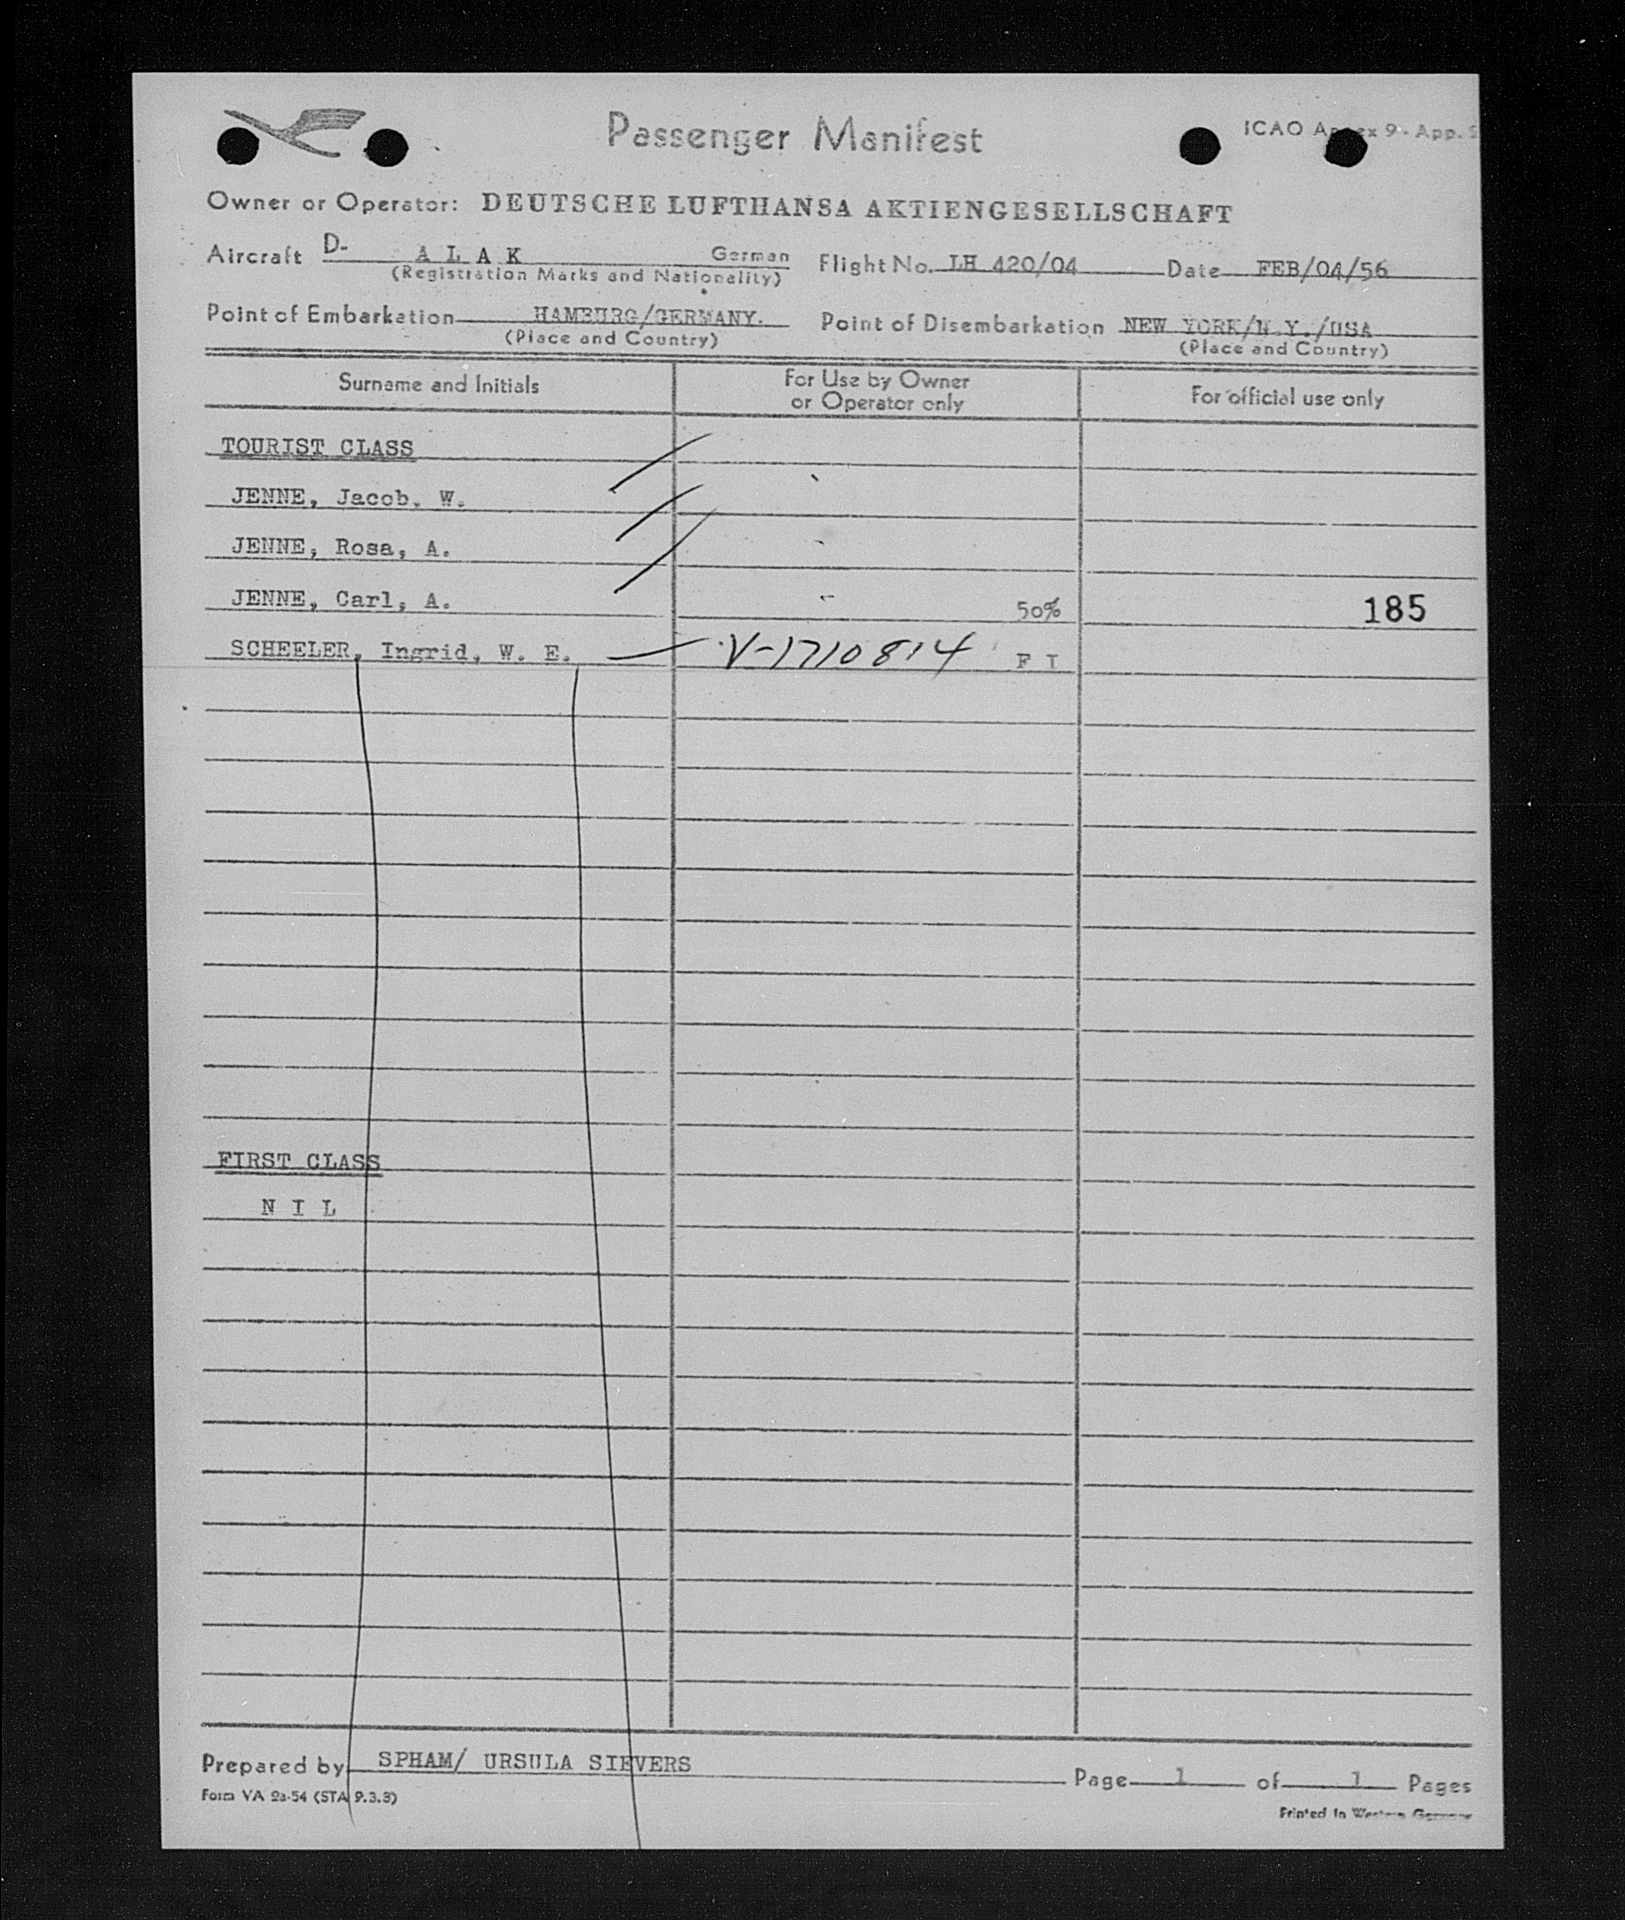 Passenger Manifest
ICAO Annex 9 - App.
Owner or Operator: DEUTSCHE LUFTHANSA AKTIENGESELLSCHAFT
Aircraft D- A L A K German Flight No. LH 420/04 Date FEB/04/56
(Registration Marks and Nationality)
Point of Embarkation HAMBURG/GERMANY. Point of Disembarkation NEW YORK/N.Y./USA
(Place and Country) (Place and Country)
Surname and Initials For Use by Owner or Operator only For official use only
TOURIST CLASS
JENNE, Jacob, W.
JENNE, Rosa, A.
JENNE, Carl, A. 50% 185
SCHEELER, Ingrid, W. E. V-1710814 F I
FIRST CLASS
N I L
Prepared by SPHAM/ URSULA SIEVERS Page 1 of 1 Pages
Form VA 2a-54 (STA 9.3.3)
Printed in Western Germany